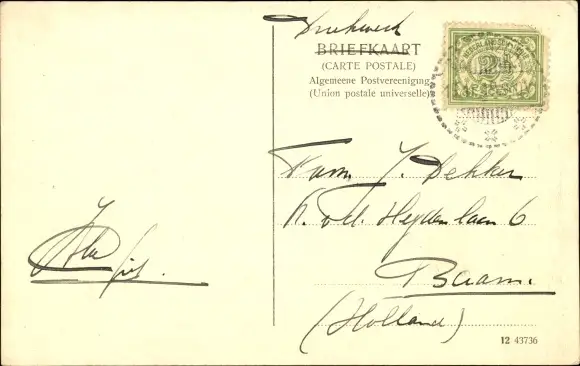 Drukwerk
BRIEFKAART
(CARTE POSTALE)
Algemeene Postvereeniging
(Union postale universelle)
NEDERLANDSCH-INDIE
2½
CENT
Fam. J. Dekker
v. d. Heydenlaan 6
Baarn.
(Holland)
12 43736